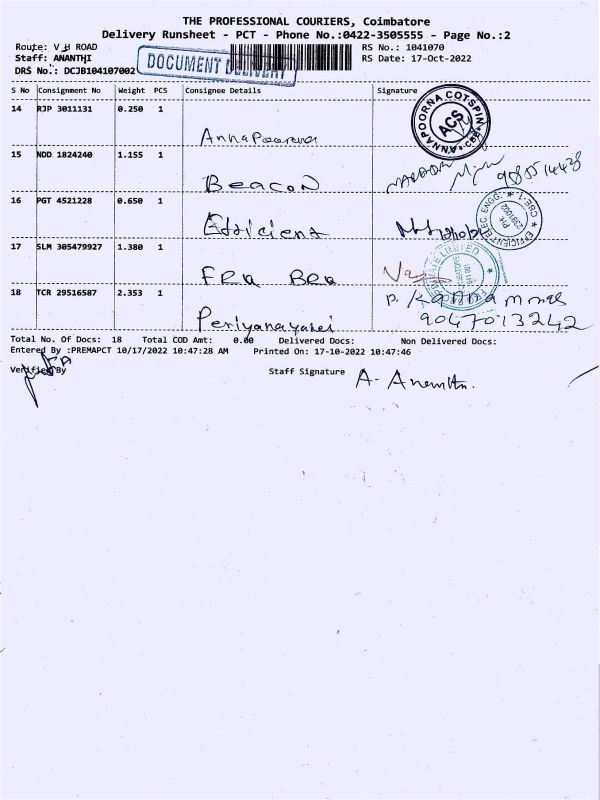 THE PROFESSIONAL COURIERS, Coimbatore
Delivery Runsheet - PCT - Phone No.:0422-3505555 - Page No.:2
Route: V H ROAD
RS No.: 1041070
Staff: ANANTHI
RS Date: 17-Oct-2022
DRS No.: DCJB104107002
DOCUMENT DELIVERY
S No Consignment No Weight PCS Consignee Details Signature
14 RJP 3011131 0.250 1
Annapoorna
ANNAPOORNA COTSPIN * CBE
ACS
15 NDD 1824240 1.155 1
Beacon
16 PGT 4521228 0.650 1
Efficient
EFFICIENT ELEC ENGG. * CBE-1. *
17 SLM 305479927 1.380 1
FRA BRA
18 TCR 29516587 2.353 1
Periyanayaki
9047013242
Total No. Of Docs: 18 Total COD Amt: 0.00 Delivered Docs: Non Delivered Docs:
Entered By :PREMAPCT 10/17/2022 10:47:28 AM Printed On: 17-10-2022 10:47:46
Verified By
Staff Signature